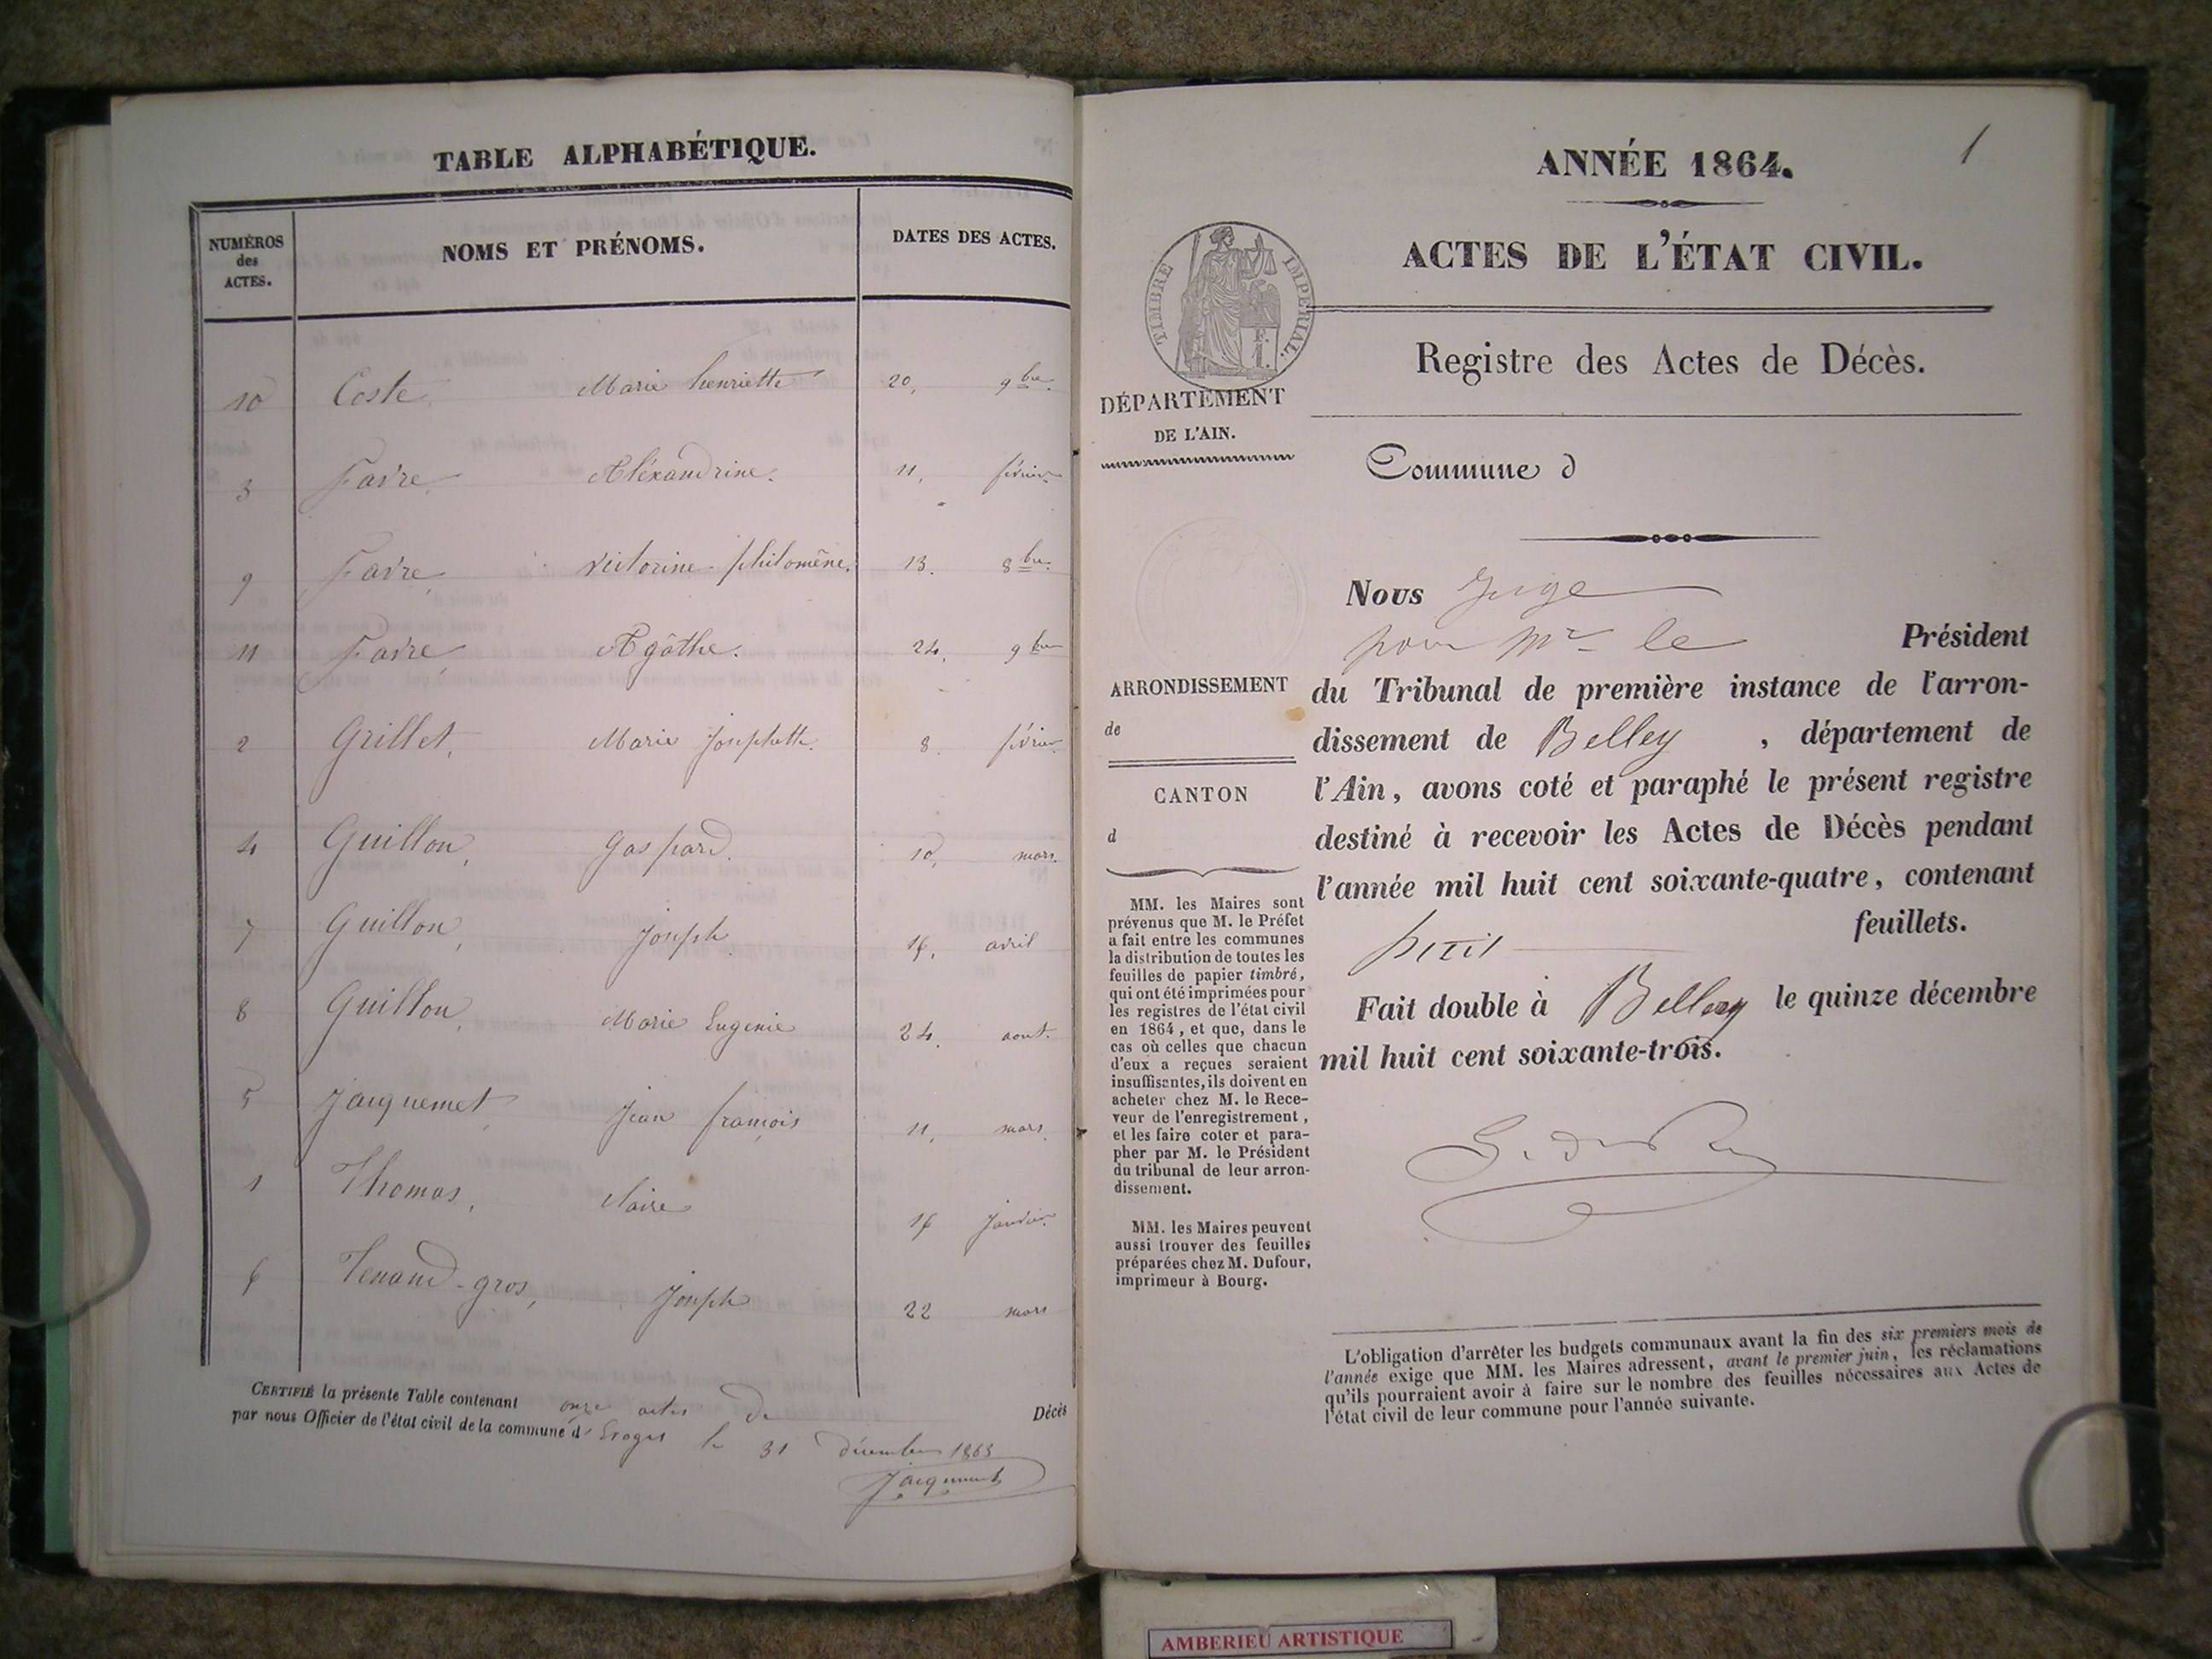 TABLE ALPHABÉTIQUE.
NUMÉROS des ACTES.
NOMS ET PRÉNOMS.
DATES DES ACTES.
10 Coste Marie henriette 20, 9bre.
3 Favre Aléxandrine. 11, février
9 Favre Victorine-philomène. 13. 8bre.
11 Favre Agâthe. 24, 9bre
2 Grillet, Marie Josephette. 8. février
4 Guillon, Gaspard. 10, mars.
7 Guillon, Joseph 16, avril
8 Guillon, Marie Eugenie 24. aout.
5 Jacquemet, Jean françois 11, mars.
1 Thomas, Claire 16 Janvier
6 Tenand-gros, Joseph 22 mars
CERTIFIÉ la présente Table contenant onze actes De Décès
par nous Officier de l'état civil de la commune d' le 31 décembre 1863
Jacquemet
1
ANNÉE 1864.
ACTES DE L'ÉTAT CIVIL.
TIMBRE IMPÉRIAL.
Registre des Actes de Décès.
DÉPARTEMENT
DE L'AIN.
Commune d
Nous Juge
pour Mr le Président
du Tribunal de première instance de l'arron-
dissement de Belley, département de
l'Ain, avons coté et paraphé le présent registre
destiné à recevoir les Actes de Décès pendant
l'année mil huit cent soixante-quatre, contenant
feuillets.
Fait double à Belley le quinze décembre
mil huit cent soixante-trois.
ARRONDISSEMENT
de
CANTON
d
MM. les Maires sont
prévenus que M. le Préfet
a fait entre les communes
la distribution de toutes les
feuilles de papier timbré,
qui ont été imprimées pour
les registres de l'état civil
en 1864, et que, dans le
cas où celles que chacun
d'eux a reçues seraient
insuffisantes, ils doivent en
acheter chez M. le Rece-
veur de l'enregistrement,
et les faire coter et para-
pher par M. le Président
du tribunal de leur arron-
dissement.
MM. les Maires peuvent
aussi trouver des feuilles
préparées chez M. Dufour,
imprimeur à Bourg.
L'obligation d'arrêter les budgets communaux avant la fin des six premiers mois de
l'année exige que MM. les Maires adressent, avant le premier juin, les réclamations
qu'ils pourraient avoir à faire sur le nombre des feuilles nécessaires aux Actes de
l'état civil de leur commune pour l'année suivante.
AMBERIEU ARTISTIQUE